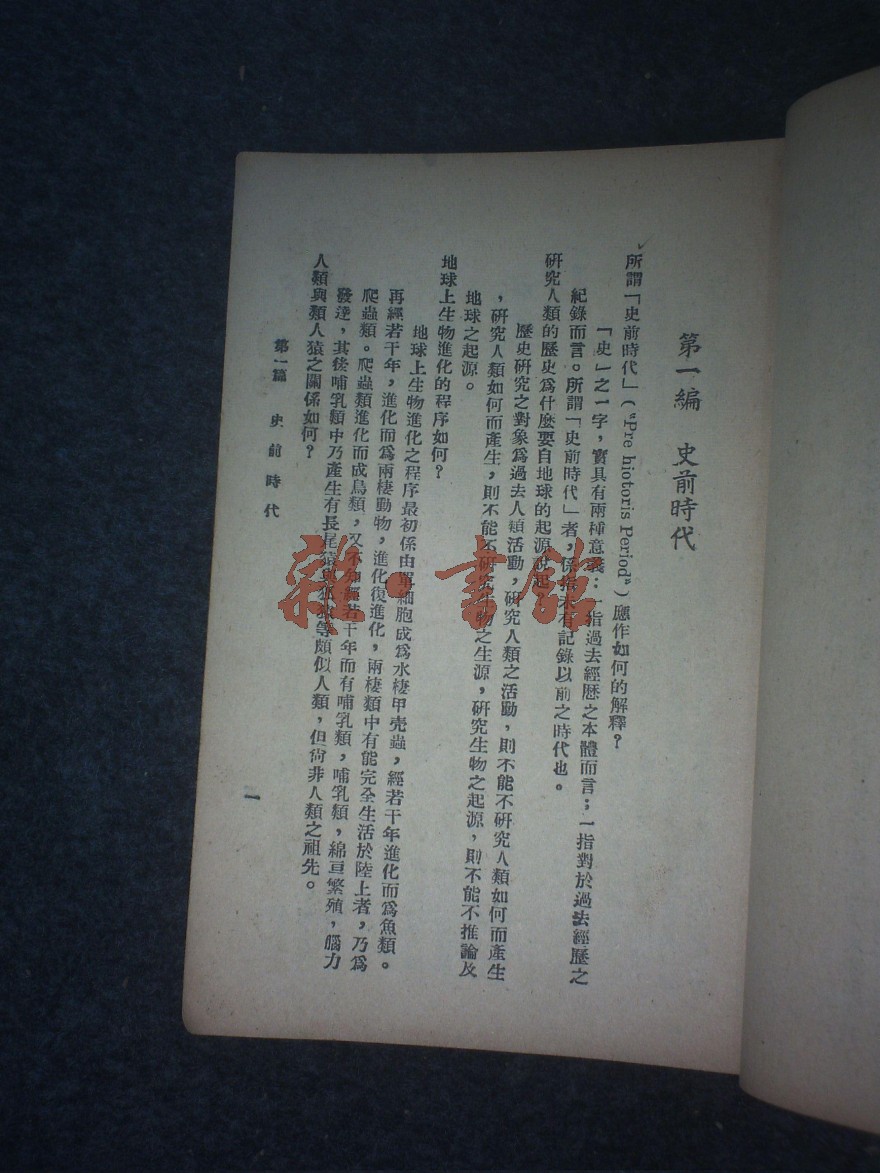 第一編 史前時代
所謂「史前時代」（"Pre hiotoris Period"）應作如何的解釋？
「史」之一字，實具有兩種意義：一指過去經歷之本體而言；一指對於過去經歷之
紀錄而言。所謂「史前時代」者，係指未有記錄以前之時代也。
研究人類的歷史爲什麼要自地球的起源說起？
歷史研究之對象爲過去人類活動，研究人類之活動，則不能不研究人類如何而產生
，研究人類如何而產生，則不能不研究生物之生源，研究生物之起源，則不能不推論及
地球之起源。
地球上生物進化的程序如何？
地球上生物進化之程序最初係由單細胞成爲水棲甲壳蟲，經若干年進化而爲魚類。
再經若干年，進化而爲兩棲動物，進化復進化，兩棲類中有能完全生活於陸上者，乃爲
爬蟲類。爬蟲類進化而成鳥類，又不知經若干年而有哺乳類，哺乳類，綿亘繁殖，腦力
發達，其後哺乳類中乃產生有長尾猿與狐猴等頗似人類，但尙非人類之祖先。
人類與類人猿之關係如何？
第一篇 史前時代
一
雜·書館